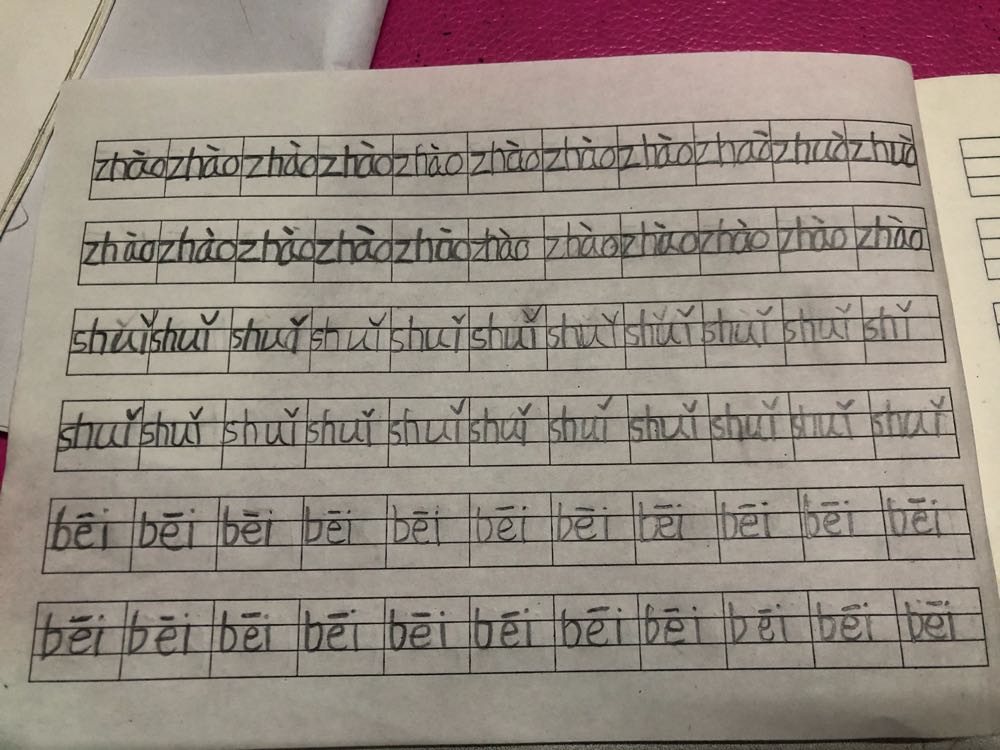 zhào zhào zhào zhào zhào zhào zhào zhào zhaò zhuò zhuò
zhào zhào zhào zhào zhào zhào zhào zhào zhào zhào zhào
shuǐ shuǐ shuǐ shuǐ shuǐ shuǐ shuǐ shuǐ shuǐ shuǐ shǐ
shuǐ shuǐ shuǐ shuǐ shuǐ shuǐ shuǐ shuǐ shuǐ shuǐ shuǐ
bēi bēi bēi bēi bēi bēi bēi bēi bēi bēi bēi
bēi bēi bēi bēi bēi bēi bēi bēi bēi bēi bēi